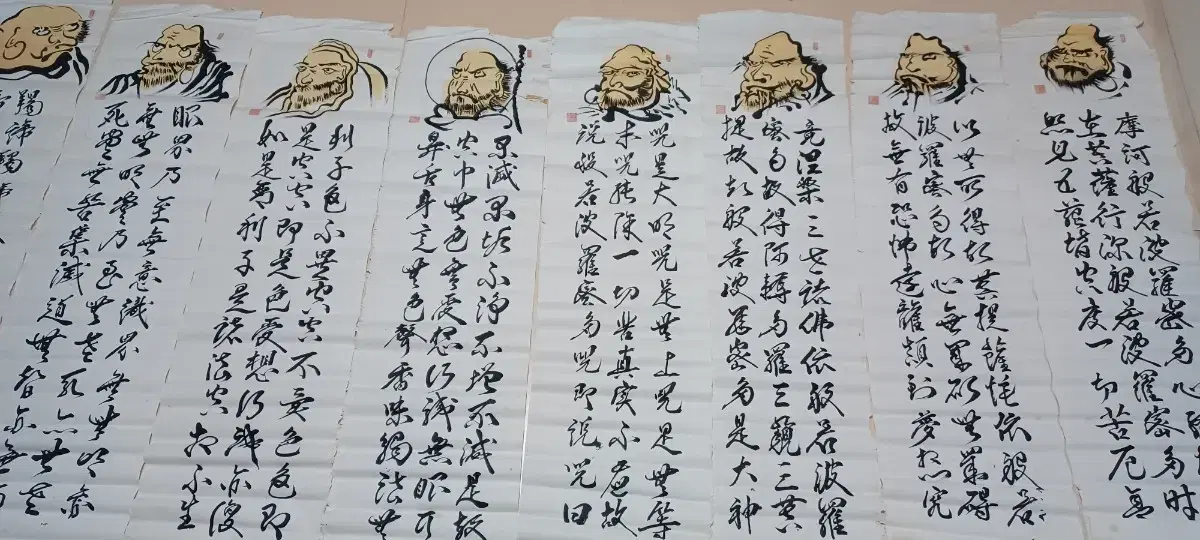 摩訶般若波羅密多心
在菩薩行深般若波羅密多时
照見五蘊皆空度一切苦厄舍
以無所得故菩提薩埵依般若
波羅密多故心無罣碍無罣碍
故無有恐怖遠離顛倒夢想究
竟涅槃三世諸佛依般若波羅
密多故得阿耨多羅三藐三菩
提故知般若波羅密多是大神
咒是大明咒是無上咒是無等
等咒能除一切苦真实不虚故
说般若波羅密多咒即说咒曰
不滅不垢不淨不增不減是故
空中無色無受想行識無眼耳
鼻舌身意無色聲香味觸法無
利子色不異空空不異色色即
是空空即是色受想行識亦復
如是舍利子是諸法空相不生
眼界乃至無意識界無無明亦
無無明盡乃至無老死亦無老
死盡無苦集滅道無智亦無
羯諦羯諦